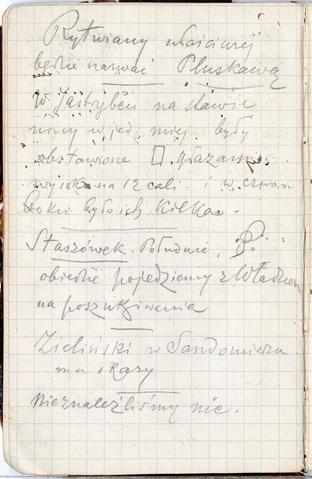 Rytwiany właściwej
będzie nazwać Pluskawą
W Jastrybcu na sławie
nowy w jed. miej. były
obstawione □. głazami
wysoka na 12 cali i w
boku było ich kilka.
Staszówek. Południe, Po
obiedzie pojedziemy z Władkiem
na poszukiwania
Zieliński w Sandomierzu
ma okazy
Nieznaleźliśmy nic.